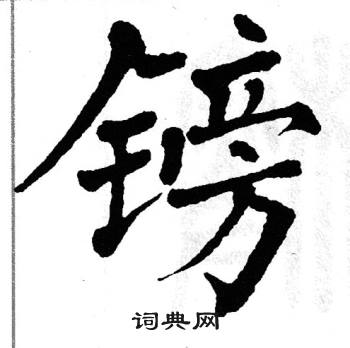 镑
词典网